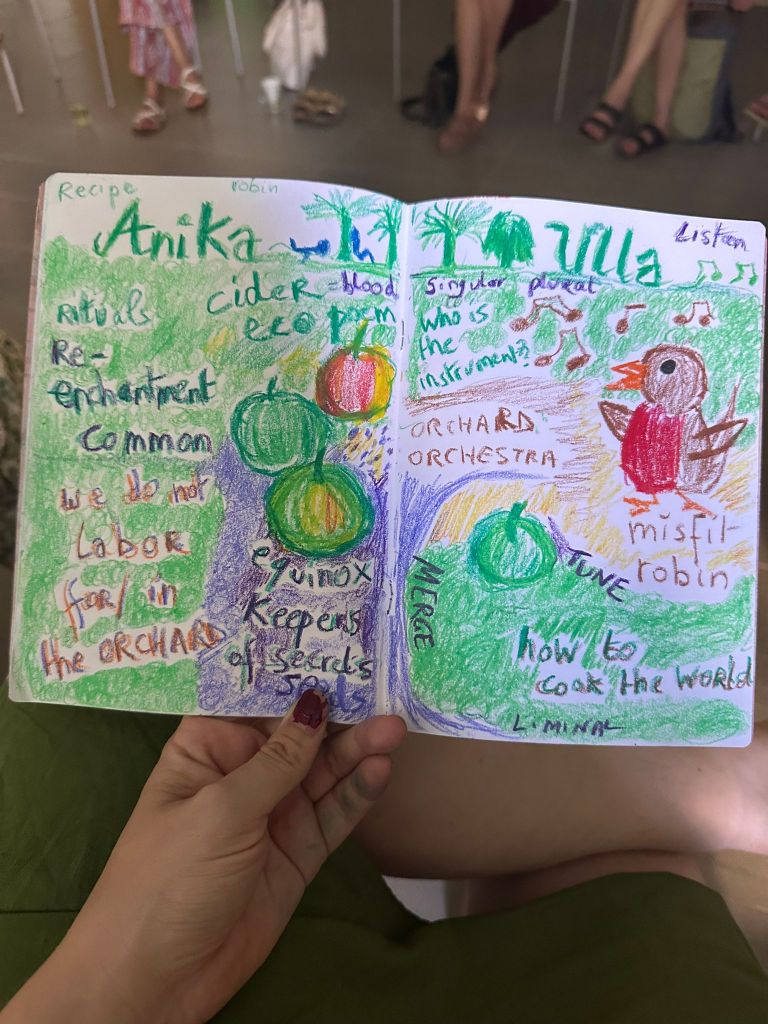 Recipe
robin
Anika
cider = blood
eco poem
Rituals
Re-
enchantment
Common
we do not
Labor
for/in
the ORCHARD
equinox
Keepers
of secrets
Seeds
Ulla
Listen
singular plureal
who is
the
instrument?
ORCHARD
ORCHESTRA
misfit
robin
TUNE
MERGE
how to
cook the WORLD
LIMINAL